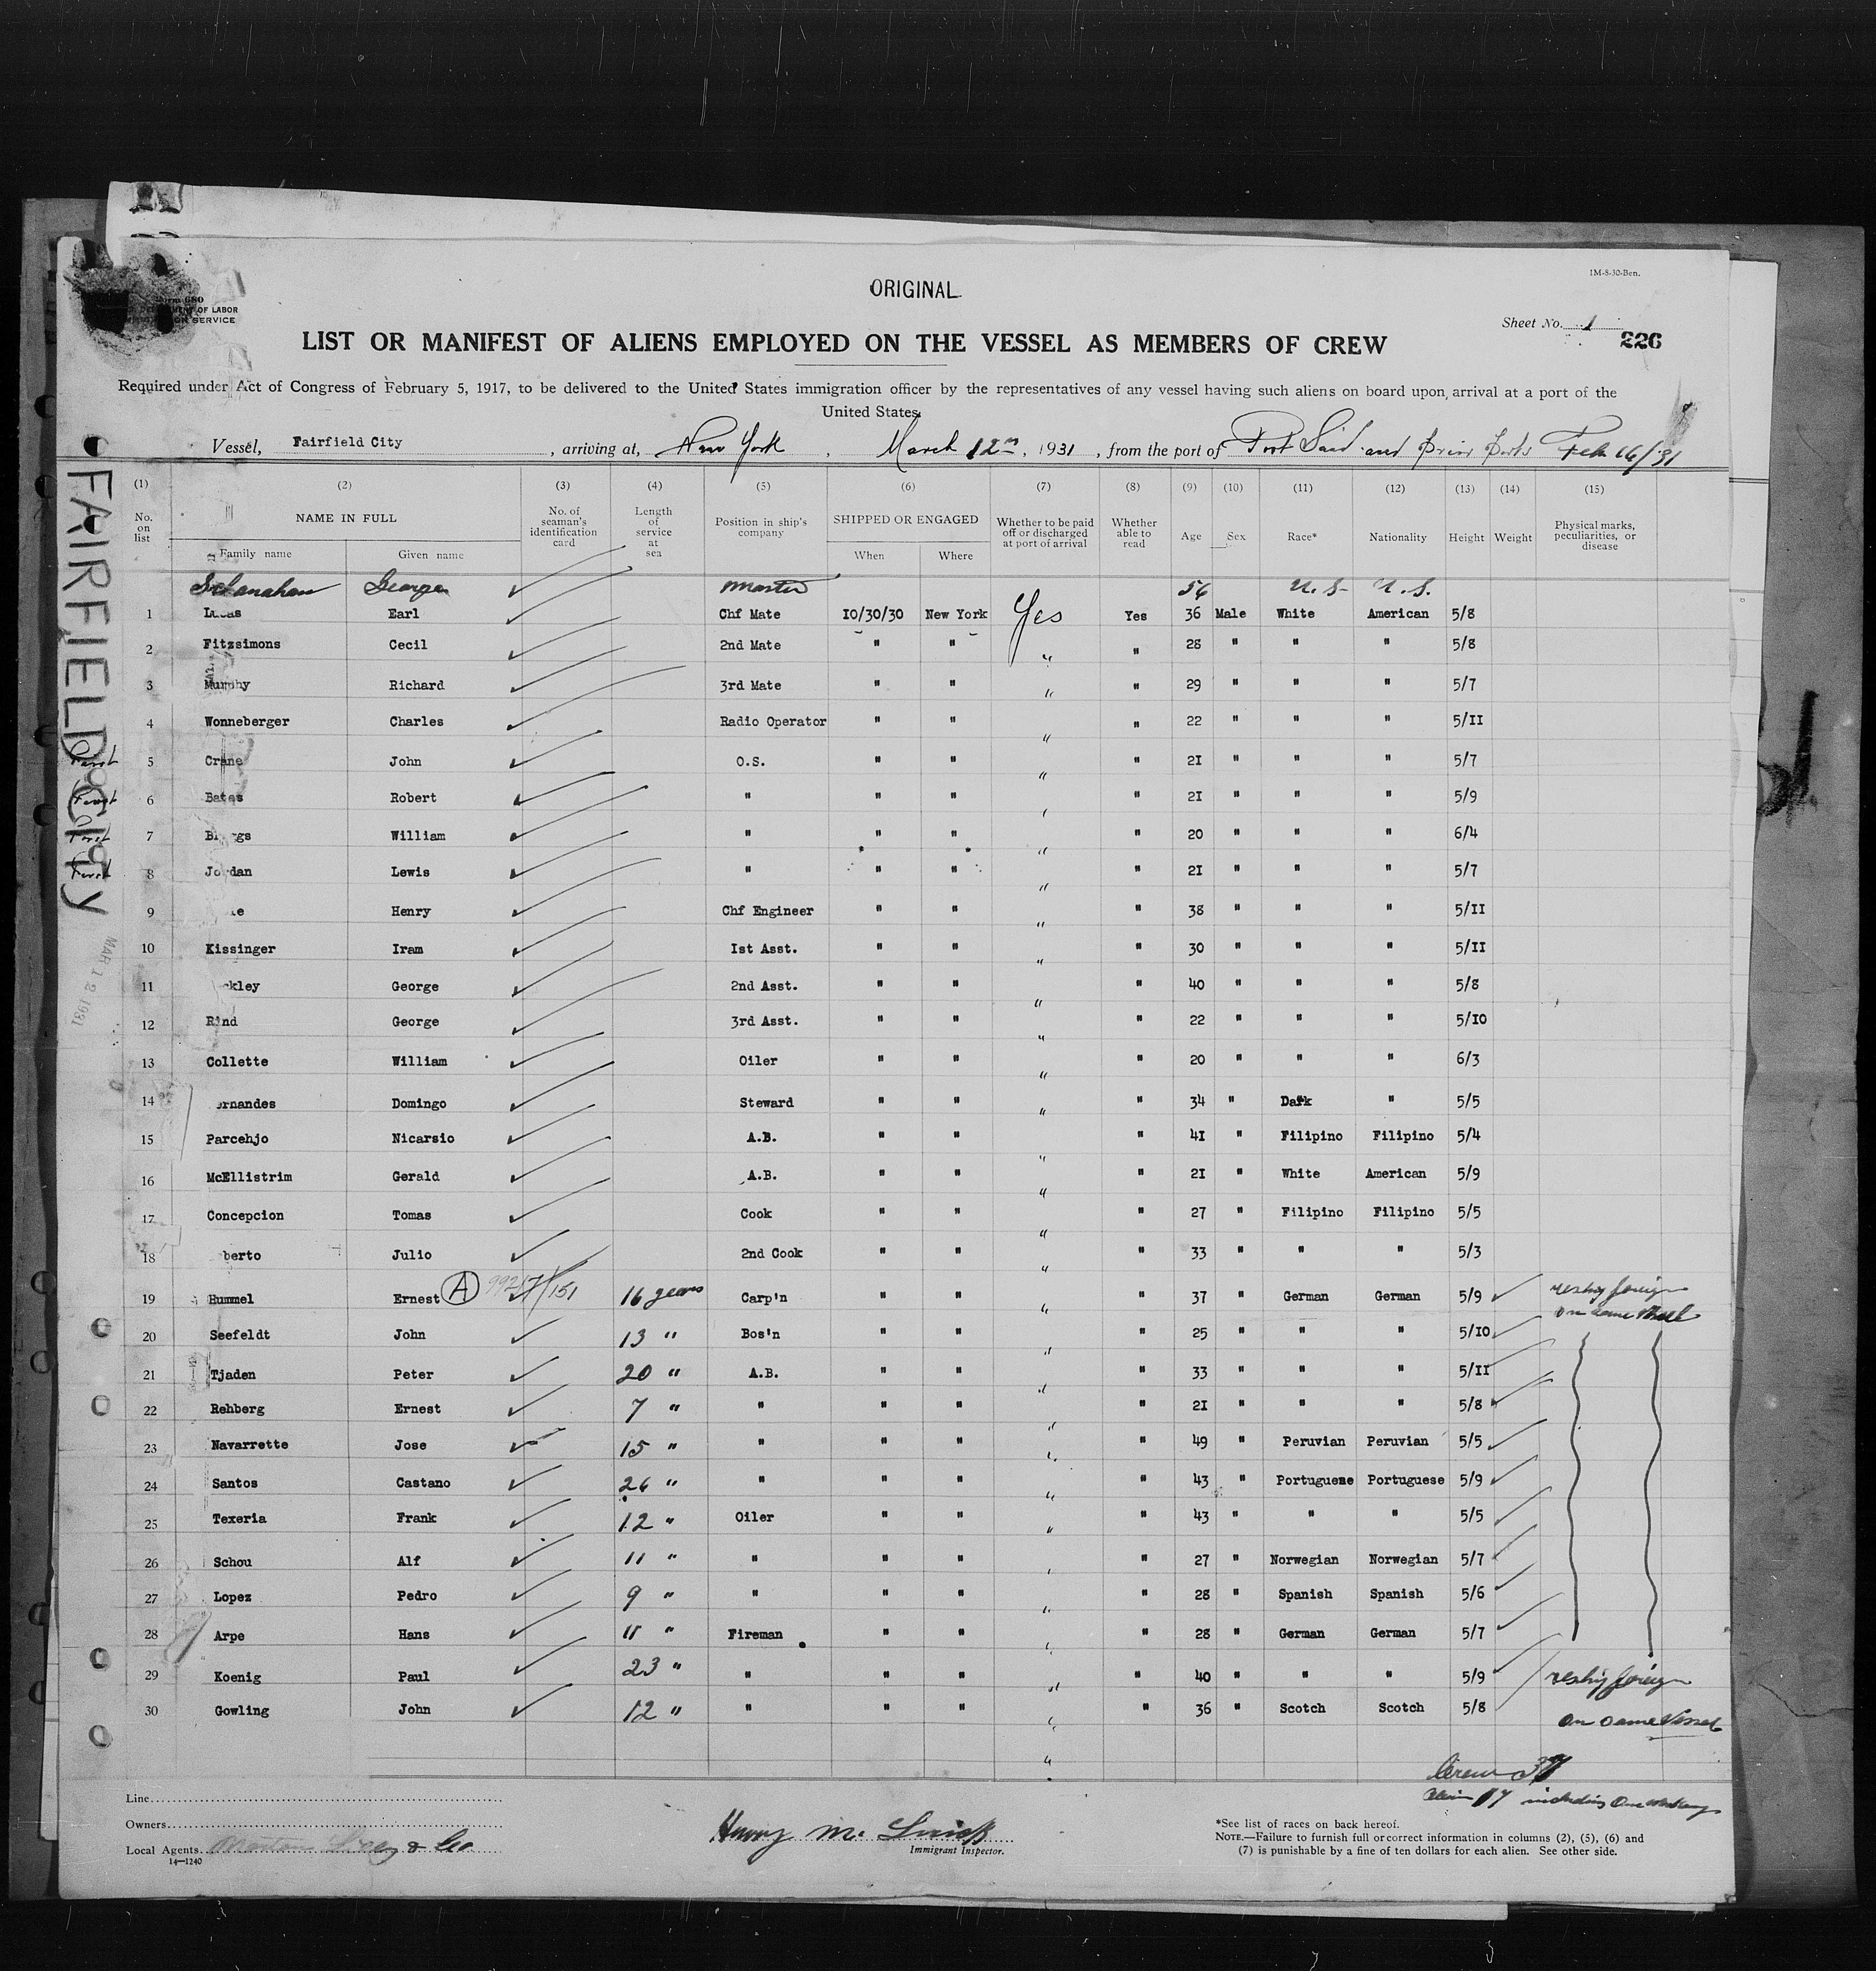 ORIGINAL
1M-8-30-Ben.
Form 680
OF LABOR
SERVICE
Sheet No. 1
226
LIST OR MANIFEST OF ALIENS EMPLOYED ON THE VESSEL AS MEMBERS OF CREW
Required under Act of Congress of February 5, 1917, to be delivered to the United States immigration officer by the representatives of any vessel having such aliens on board upon arrival at a port of the
United States
Vessel, Fairfield City, arriving at, New York, March 12th, 1931, from the port of Port Said and prior ports Feb 16/31
FAIRFIELD City
MAR 12 1931
(1) (2) (3) (4) (5) (6) (7) (8) (9) (10) (11) (12) (13) (14) (15)
No. on list NAME IN FULL No. of seaman's identification card Length of service at sea Position in ship's company SHIPPED OR ENGAGED Whether to be paid off or discharged at port of arrival Whether able to read Age Sex Race* Nationality Height Weight Physical marks, peculiarities, or disease
Family name Given name When Where
George Master 54 U.S. U.S.
1 Lucas Earl Chf Mate 10/30/30 New York Yes Yes 36 Male White American 5/8
2 Fitzsimons Cecil 2nd Mate " " " " 28 " " " 5/8
3 Murphy Richard 3rd Mate " " " " 29 " " " 5/7
4 Wonneberger Charles Radio Operator " " " " 22 " " " 5/11
First 5 Crane John O.S. " " " " 21 " " " 5/7
First 6 Bates Robert " " " " " 21 " " " 5/9
First 7 William " " " " " 20 " " " 6/4
First 8 Jordan Lewis " " " " " 21 " " " 5/7
9 Henry Chf Engineer " " " " 38 " " " 5/11
10 Kissinger Iram 1st Asst. " " " " 30 " " " 5/11
11 George 2nd Asst. " " " " 40 " " " 5/8
12 Rind George 3rd Asst. " " " " 22 " " " 5/10
13 Collette William Oiler " " " " 20 " " " 6/3
14 Domingo Steward " " " " 34 " Dark " 5/5
15 Parcehjo Nicarsio A.B. " " " " 41 " Filipino Filipino 5/4
16 McEllistrim Gerald A.B. " " " " 21 " White American 5/9
17 Concepcion Tomas Cook " " " " 27 " Filipino Filipino 5/5
18 Julio 2nd Cook " " " " 33 " " " 5/3
19 Hummel Ernest A 16 years Carp'n " " " " 37 " German German 5/9 reship foreign
on same vessel
20 Seefeldt John 13 " Bos'n " " " " 25 " " " 5/10
21 Tjaden Peter 20 " A.B. " " " " 33 " " " 5/11
22 Rehberg Ernest 7 " " " " " " 21 " " " 5/8
23 Navarrette Jose 15 " " " " " " 49 " Peruvian Peruvian 5/5
24 Santos Castano 26 " " " " " " 43 " Portuguese Portuguese 5/9
25 Texeria Frank 12 " Oiler " " " " 43 " " " 5/5
26 Schou Alf 11 " " " " " " 27 " Norwegian Norwegian 5/7
27 Lopez Pedro 9 " " " " " " 28 " Spanish Spanish 5/6
28 Arpe Hans 11 " Fireman " " " " 28 " German German 5/7
29 Koenig Paul 23 " " " " " " 40 " " " 5/9 reship foreign
30 Gowling John 12 " " " " " " 36 " Scotch Scotch 5/8 on same vessel
Crew 37
17 including one
Line
Owners
Local Agents & Co
14—1240
Immigrant Inspector.
*See list of races on back hereof.
NOTE.—Failure to furnish full or correct information in columns (2), (5), (6) and
(7) is punishable by a fine of ten dollars for each alien. See other side.